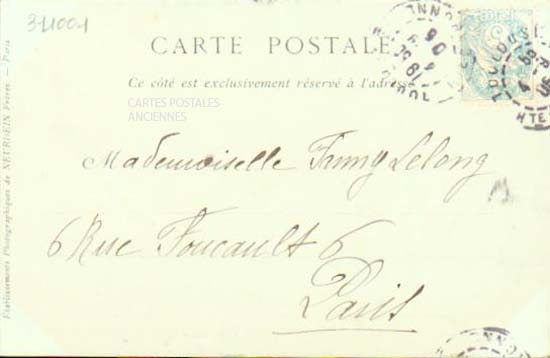 3-11001
CARTE POSTALE
Ce côté est exclusivement réservé à l'adresse
CARTES POSTALES
ANCIENNES
Mademoiselle Fanny Lelong
6 Rue Foucault 6
Paris
Etablissements Photographiques de NEURDEIN Frères — Paris